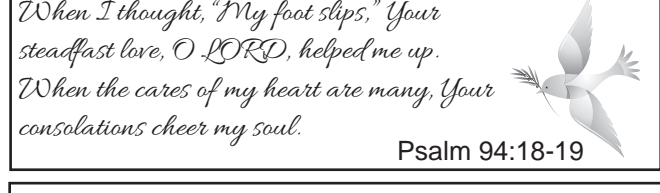 When I thought, “My foot slips,” Your
steadfast love, O LORD, helped me up.
When the cares of my heart are many, Your
consolations cheer my soul.
Psalm 94:18-19